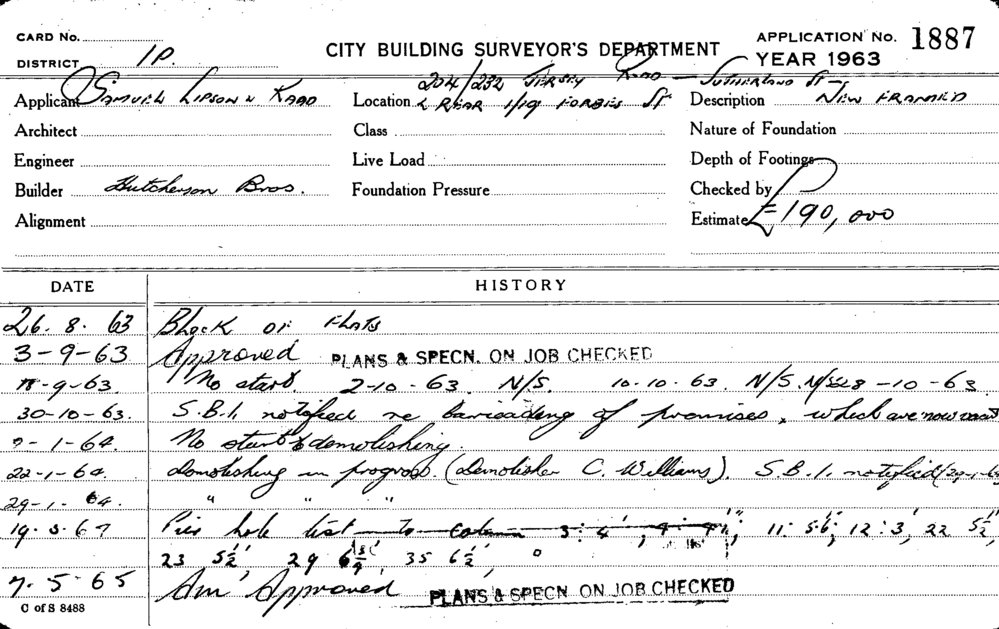 CARD No.
DISTRICT 1P.
CITY BUILDING SURVEYOR'S DEPARTMENT
APPLICATION No. 1887
YEAR 1963
Applicant Samuel Lipson & Kaad
Location 204/232 Jersey Road — Sutherland St —
& Rear 1/19 Forbes St
Description New Framed
Architect
Class
Nature of Foundation
Engineer
Live Load
Depth of Footings
Builder Hutcherson Bros.
Foundation Pressure
Checked by
Alignment
Estimate £190,000
DATE HISTORY
26. 8. 63 Block of Flats
3-9-63 Approved PLANS & SPECN. ON JOB CHECKED
-9-63. No start. 2-10-63 N/S. 10.10.63. N/S. 28-10-63
30-10-63. S.B.I. notified re barricading of premises, which are now
-1-64. No start demolishing.
22-1-64. demolishing in progress. (Demolisher C. Williams). S.B.I. notified
29-1-64. " " "
Pier hole 3: 4', 11: 12: 3', 22 5½',
23 5½', 29 35 6½',
7. 5. 65 Am Approved PLANS & SPECN ON JOB CHECKED
C of S 8488